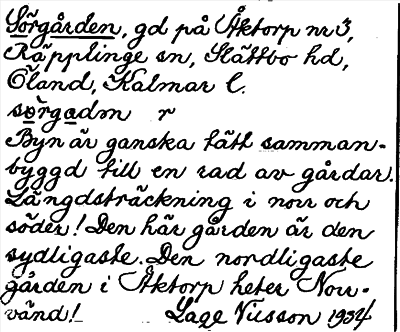 Sörgården, gd på Åktorp nr 3,
Räpplinge sn, Slättbo hd,
Öland, Kalmar l.
sörgadṇ r
Byn är ganska tätt samman-
byggd till en rad av gårdar.
Längdsträckning i norr och
söder! Den här gården är den
sydligaste. Den nordligaste
gården i Åktorp heter Norr-
vänd! Lage Nilsson 1934